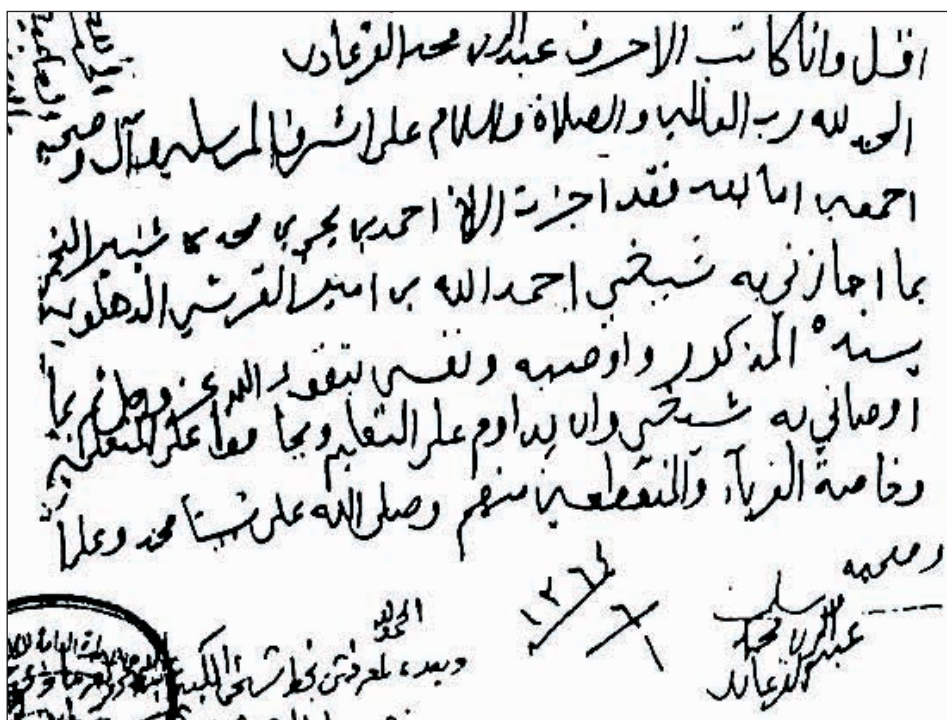 اقول وانا كاتب الاحرف عبدالله محمد القرعاوي
الحمد لله رب العالمين والصلاة والسلام على اشرف المرسلين وآله وصحبه
اجمعين اما بعد فقد اجزت الاخ احمد بن يحيى بن محمد بن شبير النجمي
بما اجازني به شيخي احمد الله بن امير القرشي الدهلوي
بسنده المذكور واوصيه ونفسي بتقوى الله عز وجل ثم بما
اوصاني به شيخي وان يداوم على التعليم ويحافظ على المتعلمين
وخاصة الغرباء والمنقطعين منهم وصلى الله على نبينا محمد وعلى آله
وصحبه وسلم
عبدالله محمد
القرعاوي
١٣٦٤/٦/١
الحمد لله
وبعد، لمعرفتي بخط شيخنا الكبير